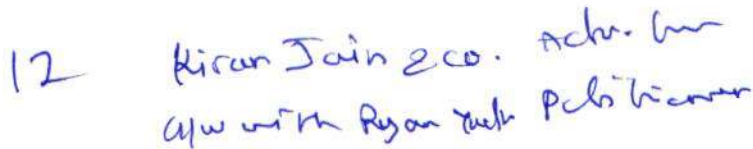 12 Kiran Jain & co. Adv. for
a/w with Petitioner